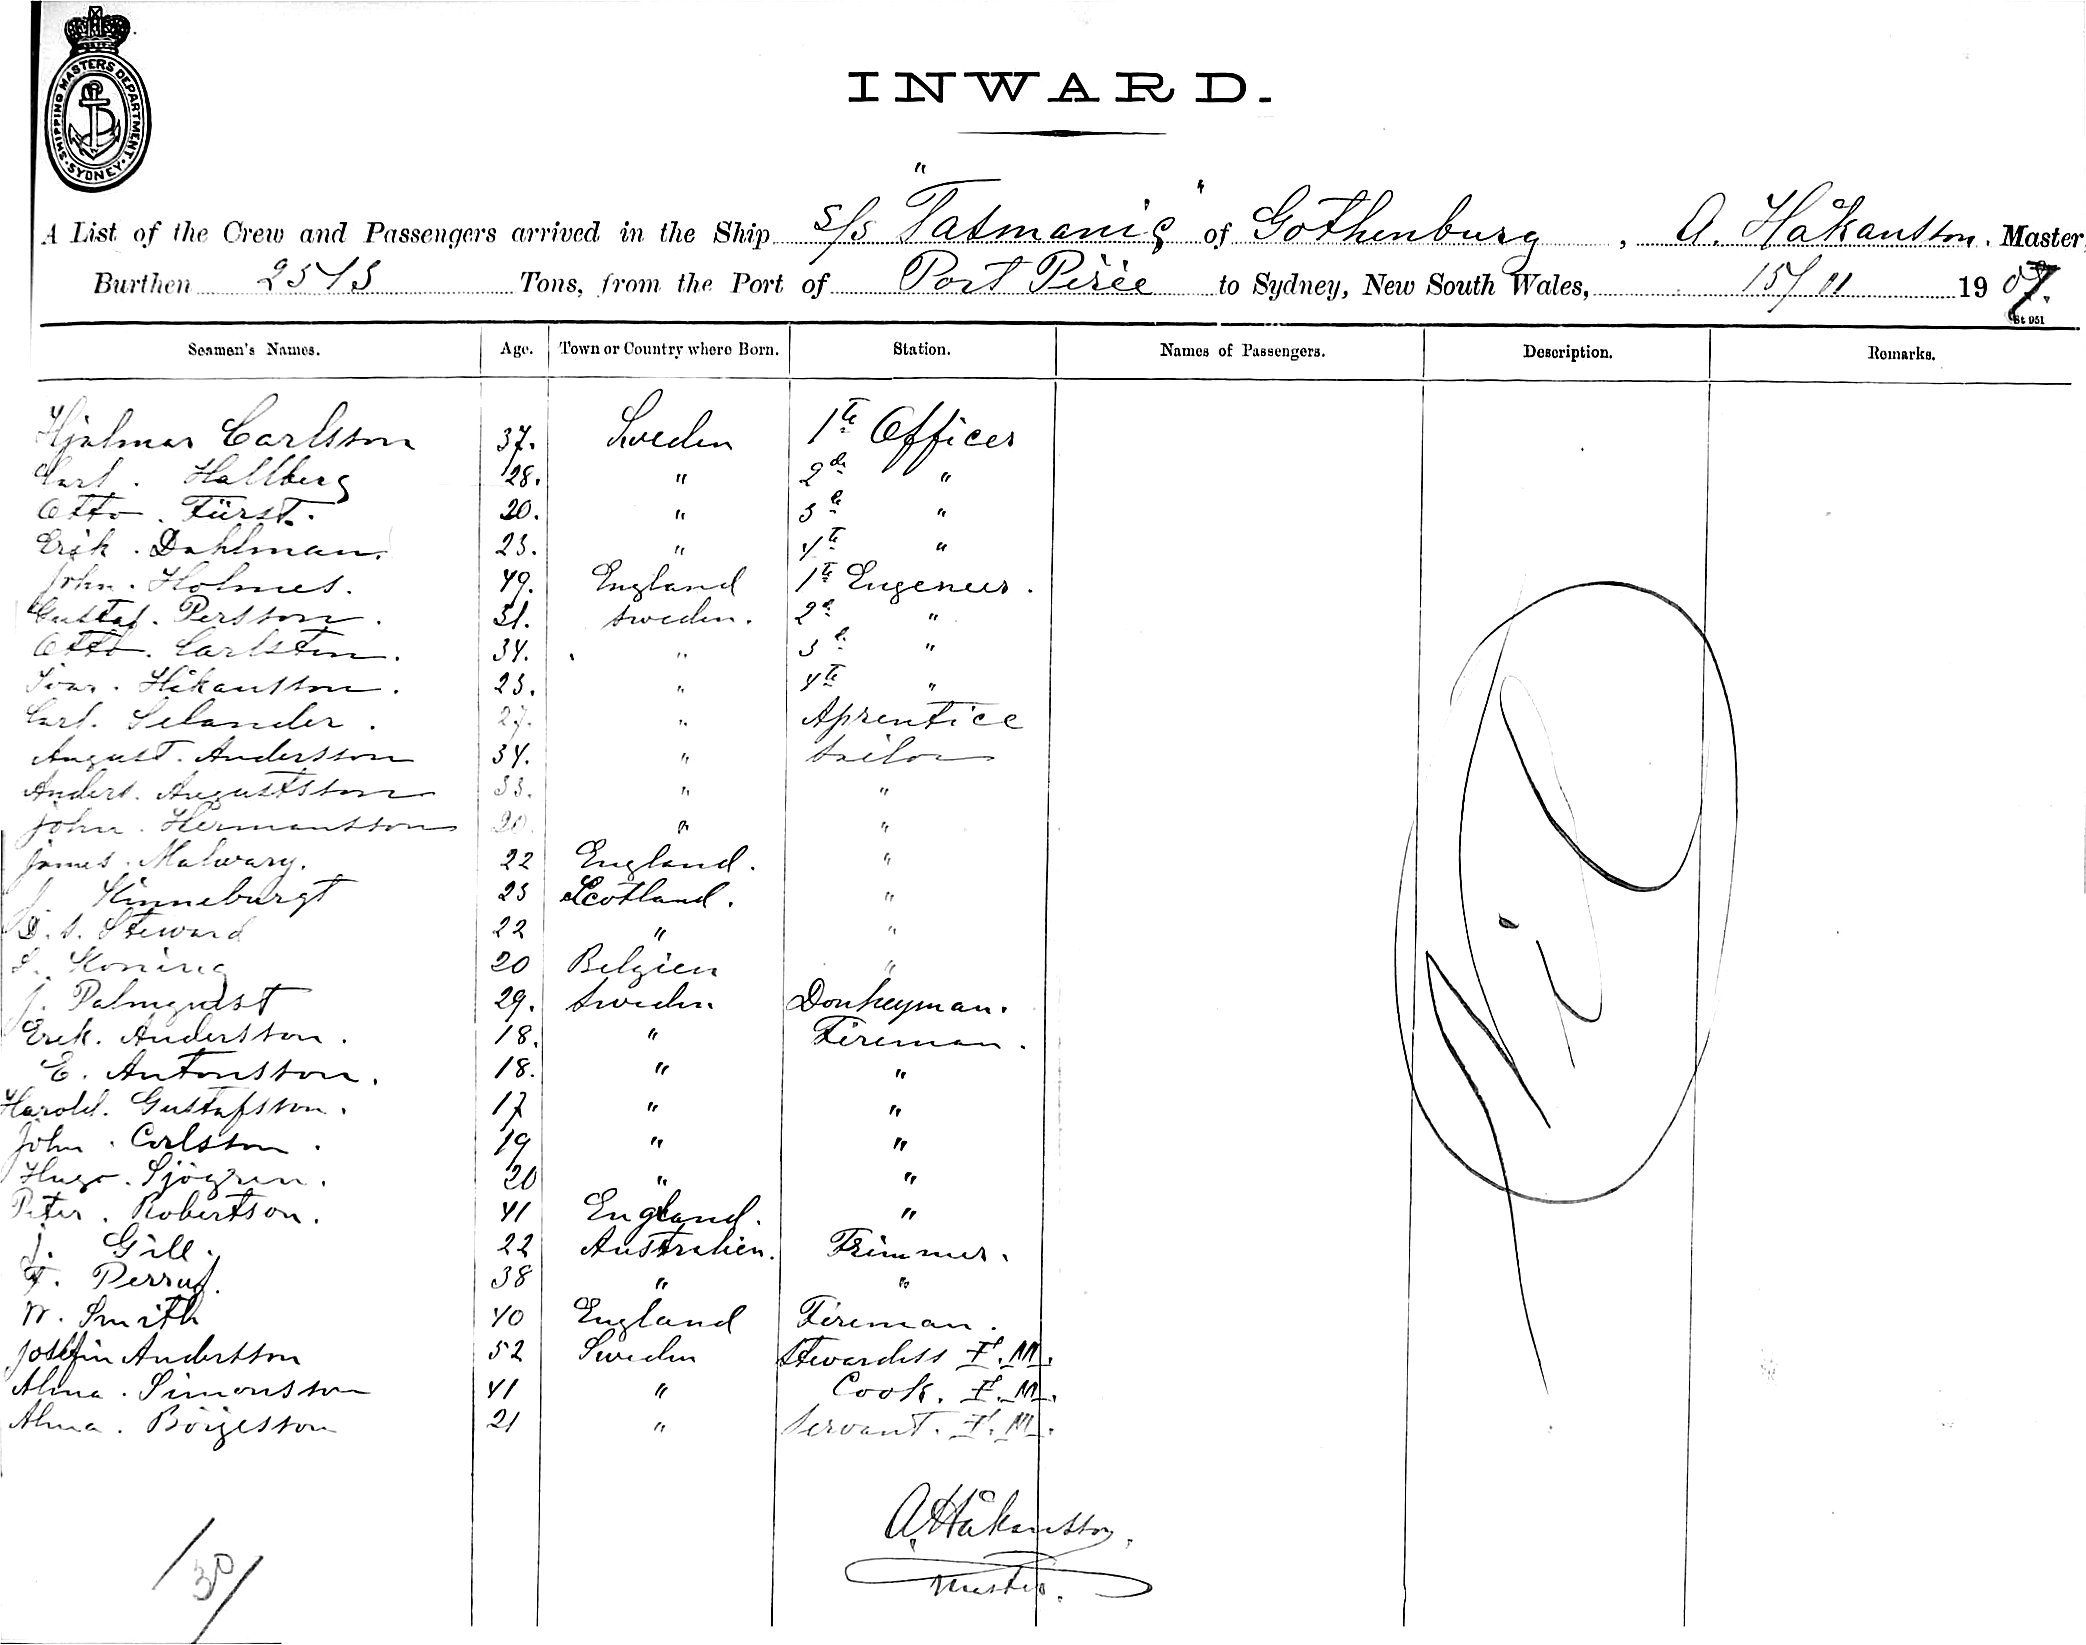 SHIPPING MASTERS DEPARTMENT. SYDNEY.
INWARD.
A List of the Crew and Passengers arrived in the Ship s/s "Tasmanic" of Gothenburg, A. Håkansson. Master
Burthen 2513 Tons, from the Port of Port Pirie to Sydney, New South Wales, 15/01 1907.
St 951
Seamen's Names. Age. Town or Country where Born. Station. Names of Passengers. Description. Remarks.
Hjalmar Carlsson 37. Sweden 1te Officer
Carl. Hallberg 28. " 2de "
Otto. Fürst. 20. " 3e "
Erik. Dahlman. 23. " 4te "
John. Holmes. 49. England 1te Engeneer.
Gustaf. Persson. 31. Sweden. 2e "
Otto. Carlsten. 34. " 3e "
Ivar. Håkansson. 23. " 4te "
Carl. Selander. 27. " Aprentice
August. Andersson 34. " Sailor
Anders. Augustsson 33. " "
John. Hermansson 20. " "
James. Malwary. 22 England. "
J. Kinneburgt 23 Scotland. "
D. S. Steward 22 " "
S. Koning 20 Belgien "
J. Palmqvist 29. Sweden Donkeyman.
Erik. Andersson. 18. " Fireman.
E. Antonsson. 18. " "
Harold. Gustafsson. 17 " "
John. Carlsson. 19 " "
Hugo. Sjögren. 20 " "
Peter. Robertson. 41 England. "
J. Gill. 22 Australien. Trimmer.
F. 38 " "
W. Smith 40 England Fireman.
Josefin Andersson 52 Sweden Stewardess F. M.
Alma. Simonsson 41 " Cook. F. M.
Alma. Börjesson 21 " Servant. F. M.
Nil
A. Håkansson.
Master.
/30/